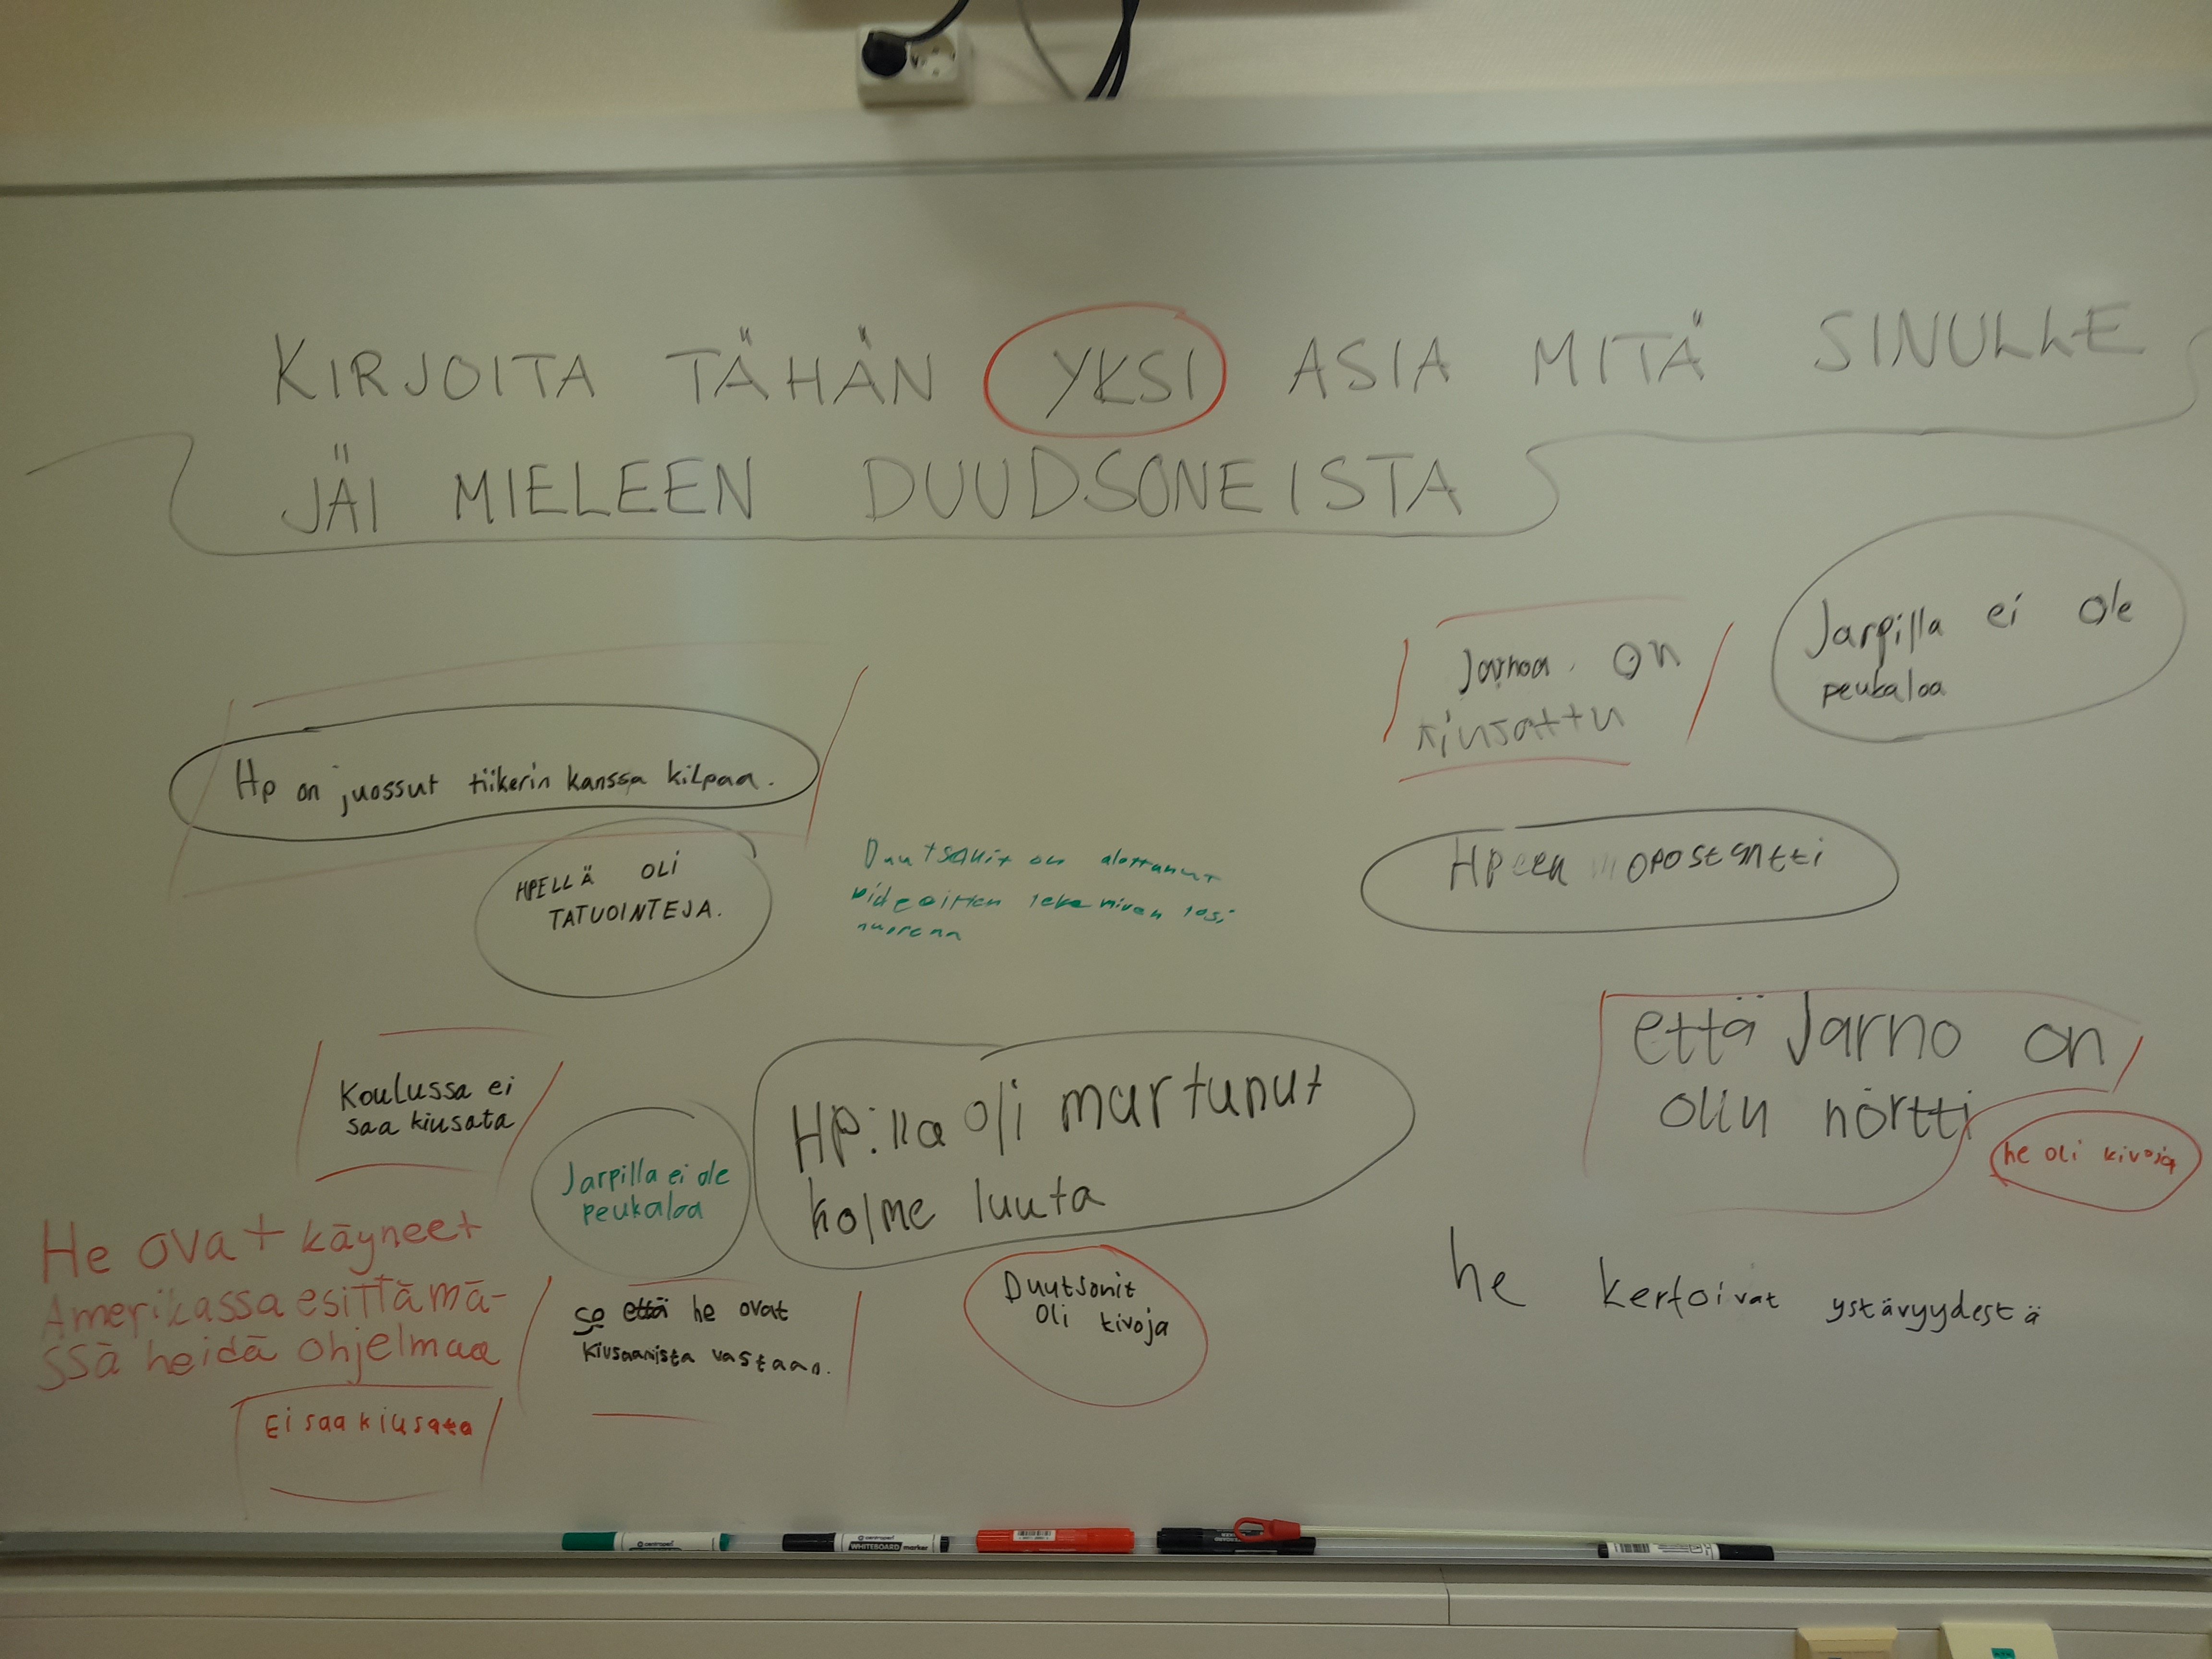 KIRJOITA TÄHÄN YKSI ASIA MITÄ SINULLE
JÄI MIELEEN DUUDSONEISTA
Jarpilla ei ole
peukaloa
Jarnoa on
kiusattu
Hp on juossut tiikerin kanssa kilpaa.
HPELLÄ OLI
TATUOINTEJA.
Duutsonit on alottanut
videoitten tekemisen tosi
nuorena
HPeen mopostentti
että Jarno on
ollu nörtti
he oli kivoja
Koulussa ei
saa kiusata
Jarpilla ei ole
peukaloa
HP:lla oli murtunut
kolme luuta
He ovat käyneet
Amerikassa esittämä-
ssä heidä ohjelmaa
se että he ovat
kiusaamista vastaan.
Duutsonit
oli kivoja
he kertoivat ystävyydestä
Ei saa kiusata
centropen
WHITEBOARD marker
centropen